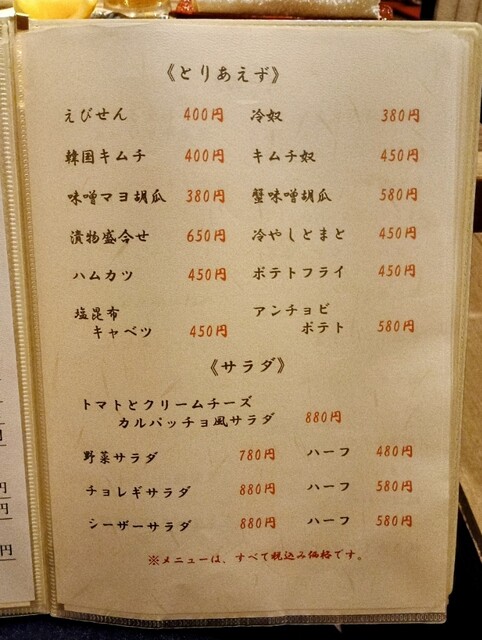 《とりあえず》
えびせん 400円 冷奴 380円
韓国キムチ 400円 キムチ奴 450円
味噌マヨ胡瓜 380円 蟹味噌胡瓜 580円
漬物盛合せ 650円 冷やしとまと 450円
ハムカツ 450円 ポテトフライ 450円
塩昆布 アンチョビ
キャベツ 450円 ポテト 580円
《サラダ》
トマトとクリームチーズ
カルパッチョ風サラダ 880円
野菜サラダ 780円 ハーフ 480円
チョレギサラダ 880円 ハーフ 580円
シーザーサラダ 880円 ハーフ 580円
※メニューは、すべて税込み価格です。
円
円
円
円